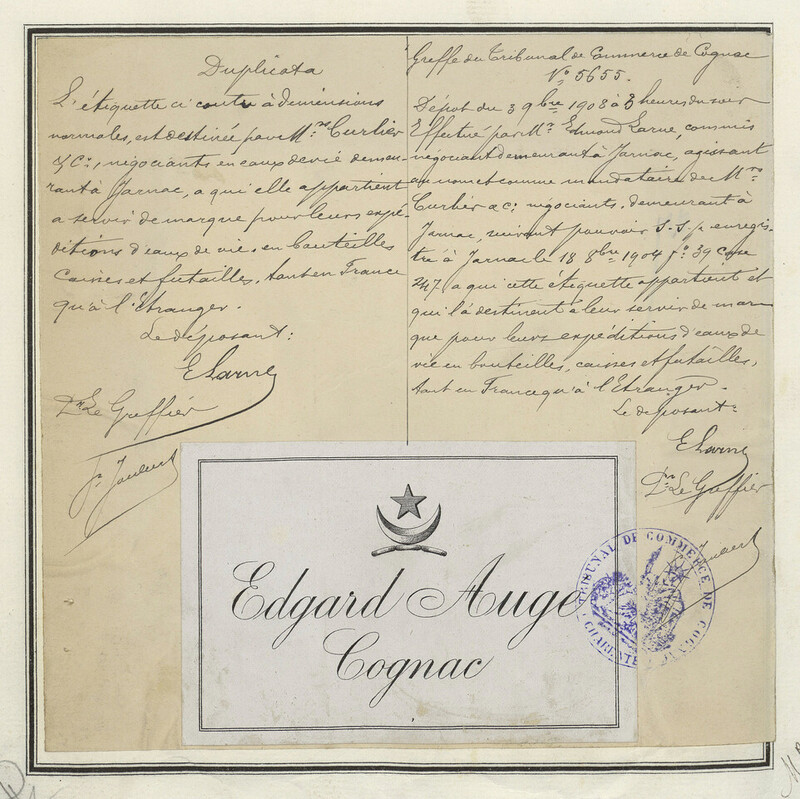 Duplicata
L'étiquette ci contre à dimensions
normales, est destinée par Mrs Curlier
& Cie, négociants en eaux de vie demeu-
rant à Jarnac, a qui elle appartient
a servir de marque pour leurs expé-
ditions d'eaux de vie, en bouteilles
caisses et futailles, tant en France
qu'à l'Etranger.
Le déposant:
E Larue
Le Greffier
Greffe du Tribunal de Commerce de Cognac
No 5655.
Dépot du 3 9bre 1908 à 3 heures du soir
Effectué par Mr Edmond Larue, commis
négociant demeurant à Jarnac, agissant
au nom et comme mandataire de Mrs
Curlier & Cie négociants, demeurant à
Jarnac, suivant pouvoir S.S.p. enregis-
tré à Jarnac le 18 8bre 1904 fo 39 case
247, a qui cette étiquette appartient et
qui l'a destinent à leur servir de mar-
que pour leurs expéditions d'eaux de
vie en bouteilles, caisses et futailles,
tant en France qu'à l'Etranger.
Le deposant:
E Larue
Le Greffier
Edgard Auge
Cognac
TRIBUNAL DE COMMERCE DE COGNAC
CHARENTE